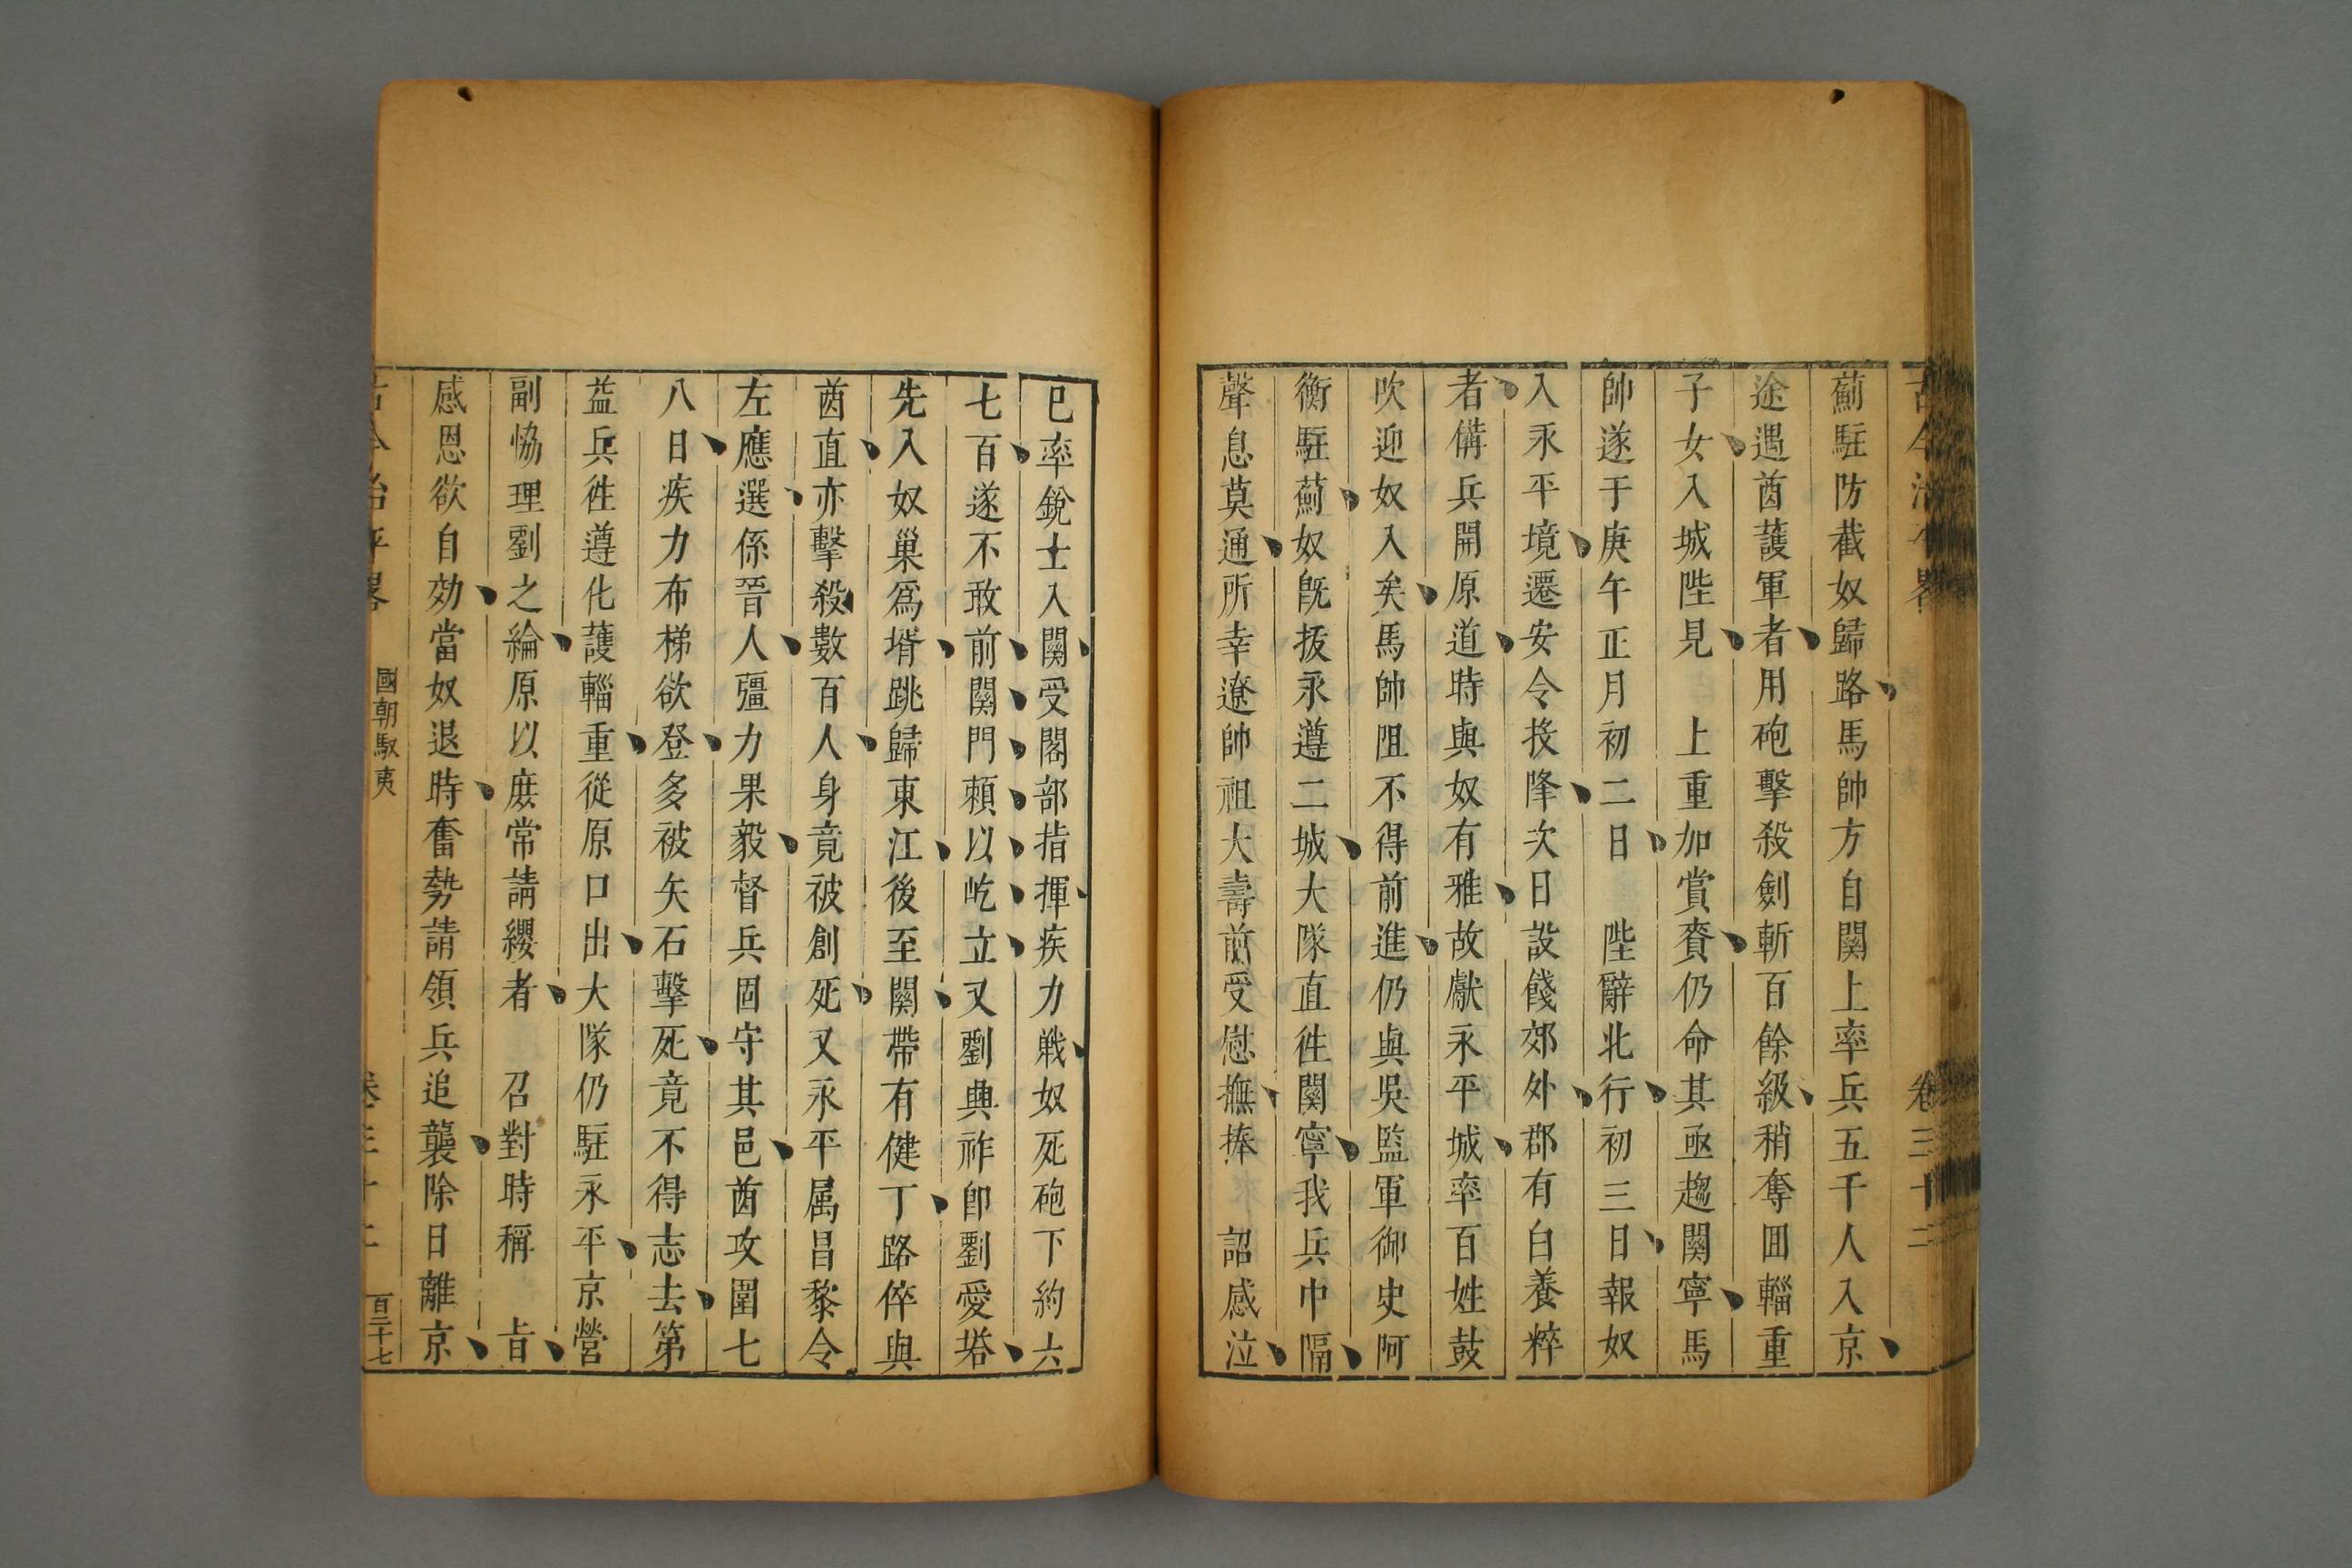 古今治平畧
卷三十二
薊駐防截奴歸路馬帥方自関上率兵五千人入京
途遇酋護軍者用砲擊殺劍斬百餘級稍奪囬輜重
子女入城陛見　上重加賞賚仍命其亟趨関寧馬
帥遂于庚午正月初二日　陛辭北行初三日報奴
入永平境遷安令投降次日設餞郊外郡有白養粹
者備兵開原道時與奴有雅故獻永平城率百姓鼓
吹迎奴入矣馬帥阻不得前進仍與吳監軍御史阿
衡駐薊奴旣拔永遵二城大隊直徃関寧我兵中隔
聲息莫通所幸遼帥祖大壽前受慰撫捧　詔感泣
巳率銳士入関受閣部指揮疾力戰奴死砲下約六
七百遂不敢前関門頼以屹立又劉興祚卽劉愛塔
先入奴巢爲壻跳歸東江後至関帶有健丁路倅與
酋直亦擊殺數百人身竟被創死又永平属昌黎令
左應選係晉人彊力果毅督兵固守其邑酋攻圍七
八日疾力布梯欲登多被矢石擊死竟不得志去第
益兵徃遵化護輜重從原口出大隊仍駐永平京營
副恊理劉之綸原以庶常請纓者　召對時稱　旨
感恩欲自効當奴退時奮勢請領兵追襲除日離京
古今治平畧
國朝馭夷
卷三十二
百三十七